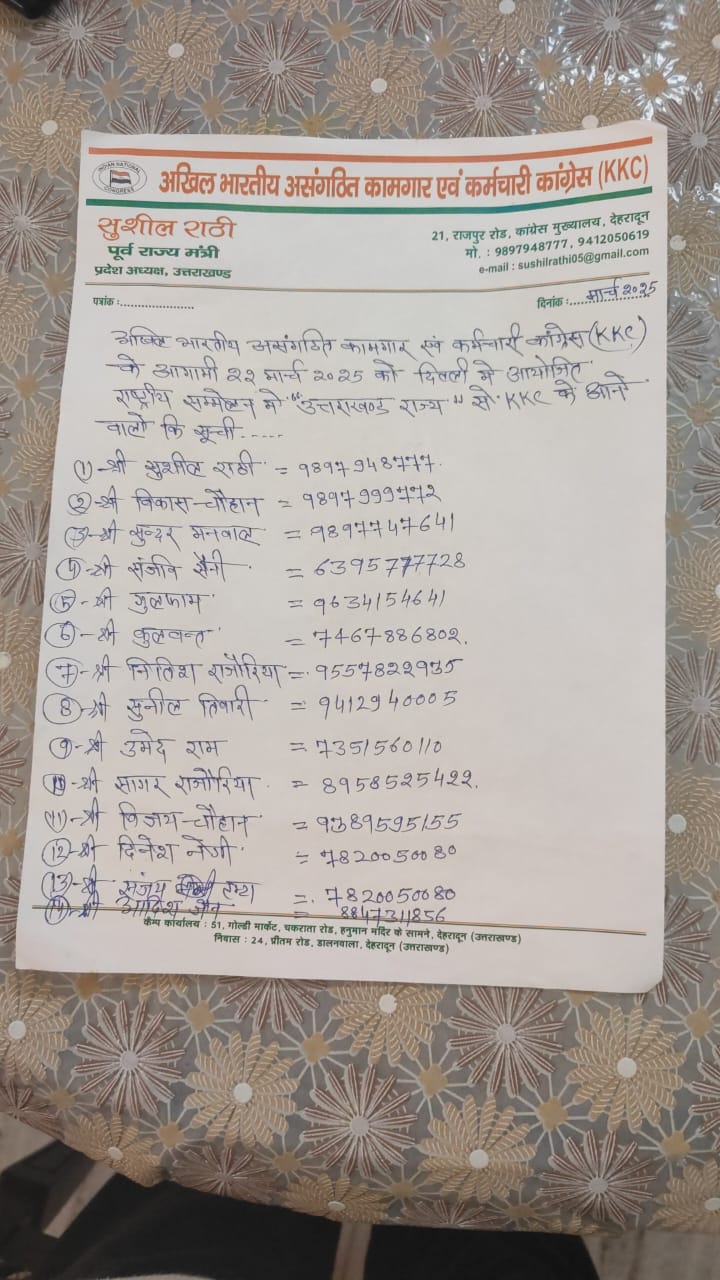 INDIAN NATIONAL CONGRESS
अखिल भारतीय असंगठित कामगार एवं कर्मचारी कांग्रेस (KKC)
सुशील राठी
पूर्व राज्य मंत्री
प्रदेश अध्यक्ष, उत्तराखण्ड
21, राजपुर रोड, कांग्रेस मुख्यालय, देहरादून
मो. : 9897948777, 9412050619
e-mail : sushilrathi05@gmail.com
पत्रांक :....................
दिनांक :.... मार्च २०२५
अखिल भारतीय असंगठित कामगार एवं कर्मचारी कांग्रेस (KKC)
के आगामी २२ मार्च २०२५ को दिल्ली मे आयोजित
राष्ट्रीय सम्मेलन मे "उत्तराखण्ड राज्य" से KKC के आने
वालो कि सूची.....
(1)-श्री सुशील राठी = ९8९७९48७७७.
(2)-श्री विकास-चौहान = ९8९७९९९७७२
(3)-श्री सुन्दर मनवाल = ९8९७७4७६41
(4)-श्री संजीव सैनी = 6395777728
(5)-श्री गुलफाम = ९634154641
(6)-श्री कुलवन्त = 7467886802.
(7)-श्री नितिश राजौरिया = ९557822९35
(8)-श्री सुनील तिवारी = ९412९40005
(9)-श्री उमेद राम = 7351560110
(10)-श्री सागर राजौरिया = 8958525422.
(11)-श्री विजय-चौहान = ९389595155
(12)-श्री दिनेश नेगी = 7820050080
(13)-श्री संजय = 7820050080
(14)-श्री आदिश जैन = 8847311856
कैम्प कार्यालय : 51, गोल्डी मार्केट, चकराता रोड, हनुमान मंदिर के सामने, देहरादून (उत्तराखण्ड)
निवास : 24, प्रीतम रोड, डालनवाला, देहरादून (उत्तराखण्ड)